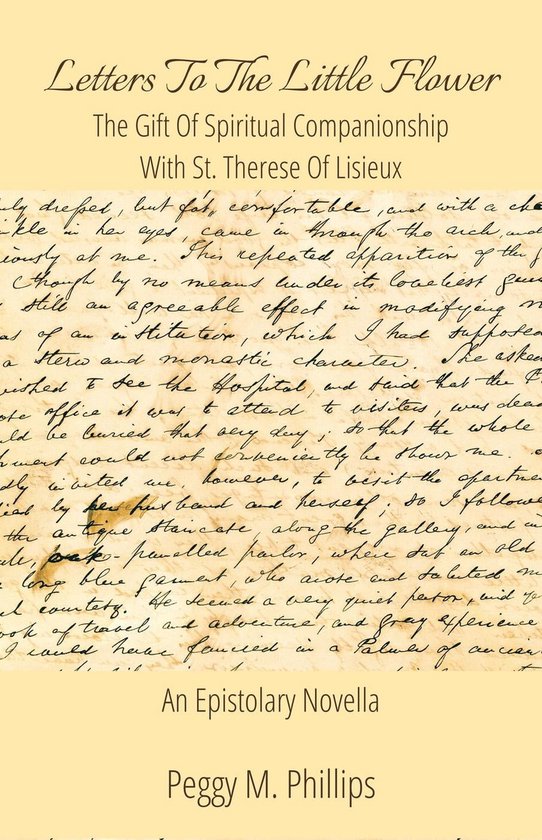 Letters To The Little Flower
The Gift Of Spiritual Companionship
With St. Therese Of Lisieux
dressed, but fat, comfortable, and with a
in her eyes, came in through the arch, and
at me. This repeated apparition of the
though by no means under its loveliest
still an agreeable effect in modifying
of an institution, which I had supposed
a stern and monastic character. She asked
wished to see the Hospital, and said that the
office it was to attend to visitors, was dead
be buried that very day; so that the whole
could not conveniently be shown me.
invited me, however, to visit the
by her husband and herself; so I followed
the antique staircase, along the gallery, and in
oak-panelled parlor, where sat an old
long blue garment, who arose and saluted
courtesy. He seemed a very quiet person, and
of travel and adventure, and gray experience
I could have fancied in a Palmer of
An Epistolary Novella
Peggy M. Phillips